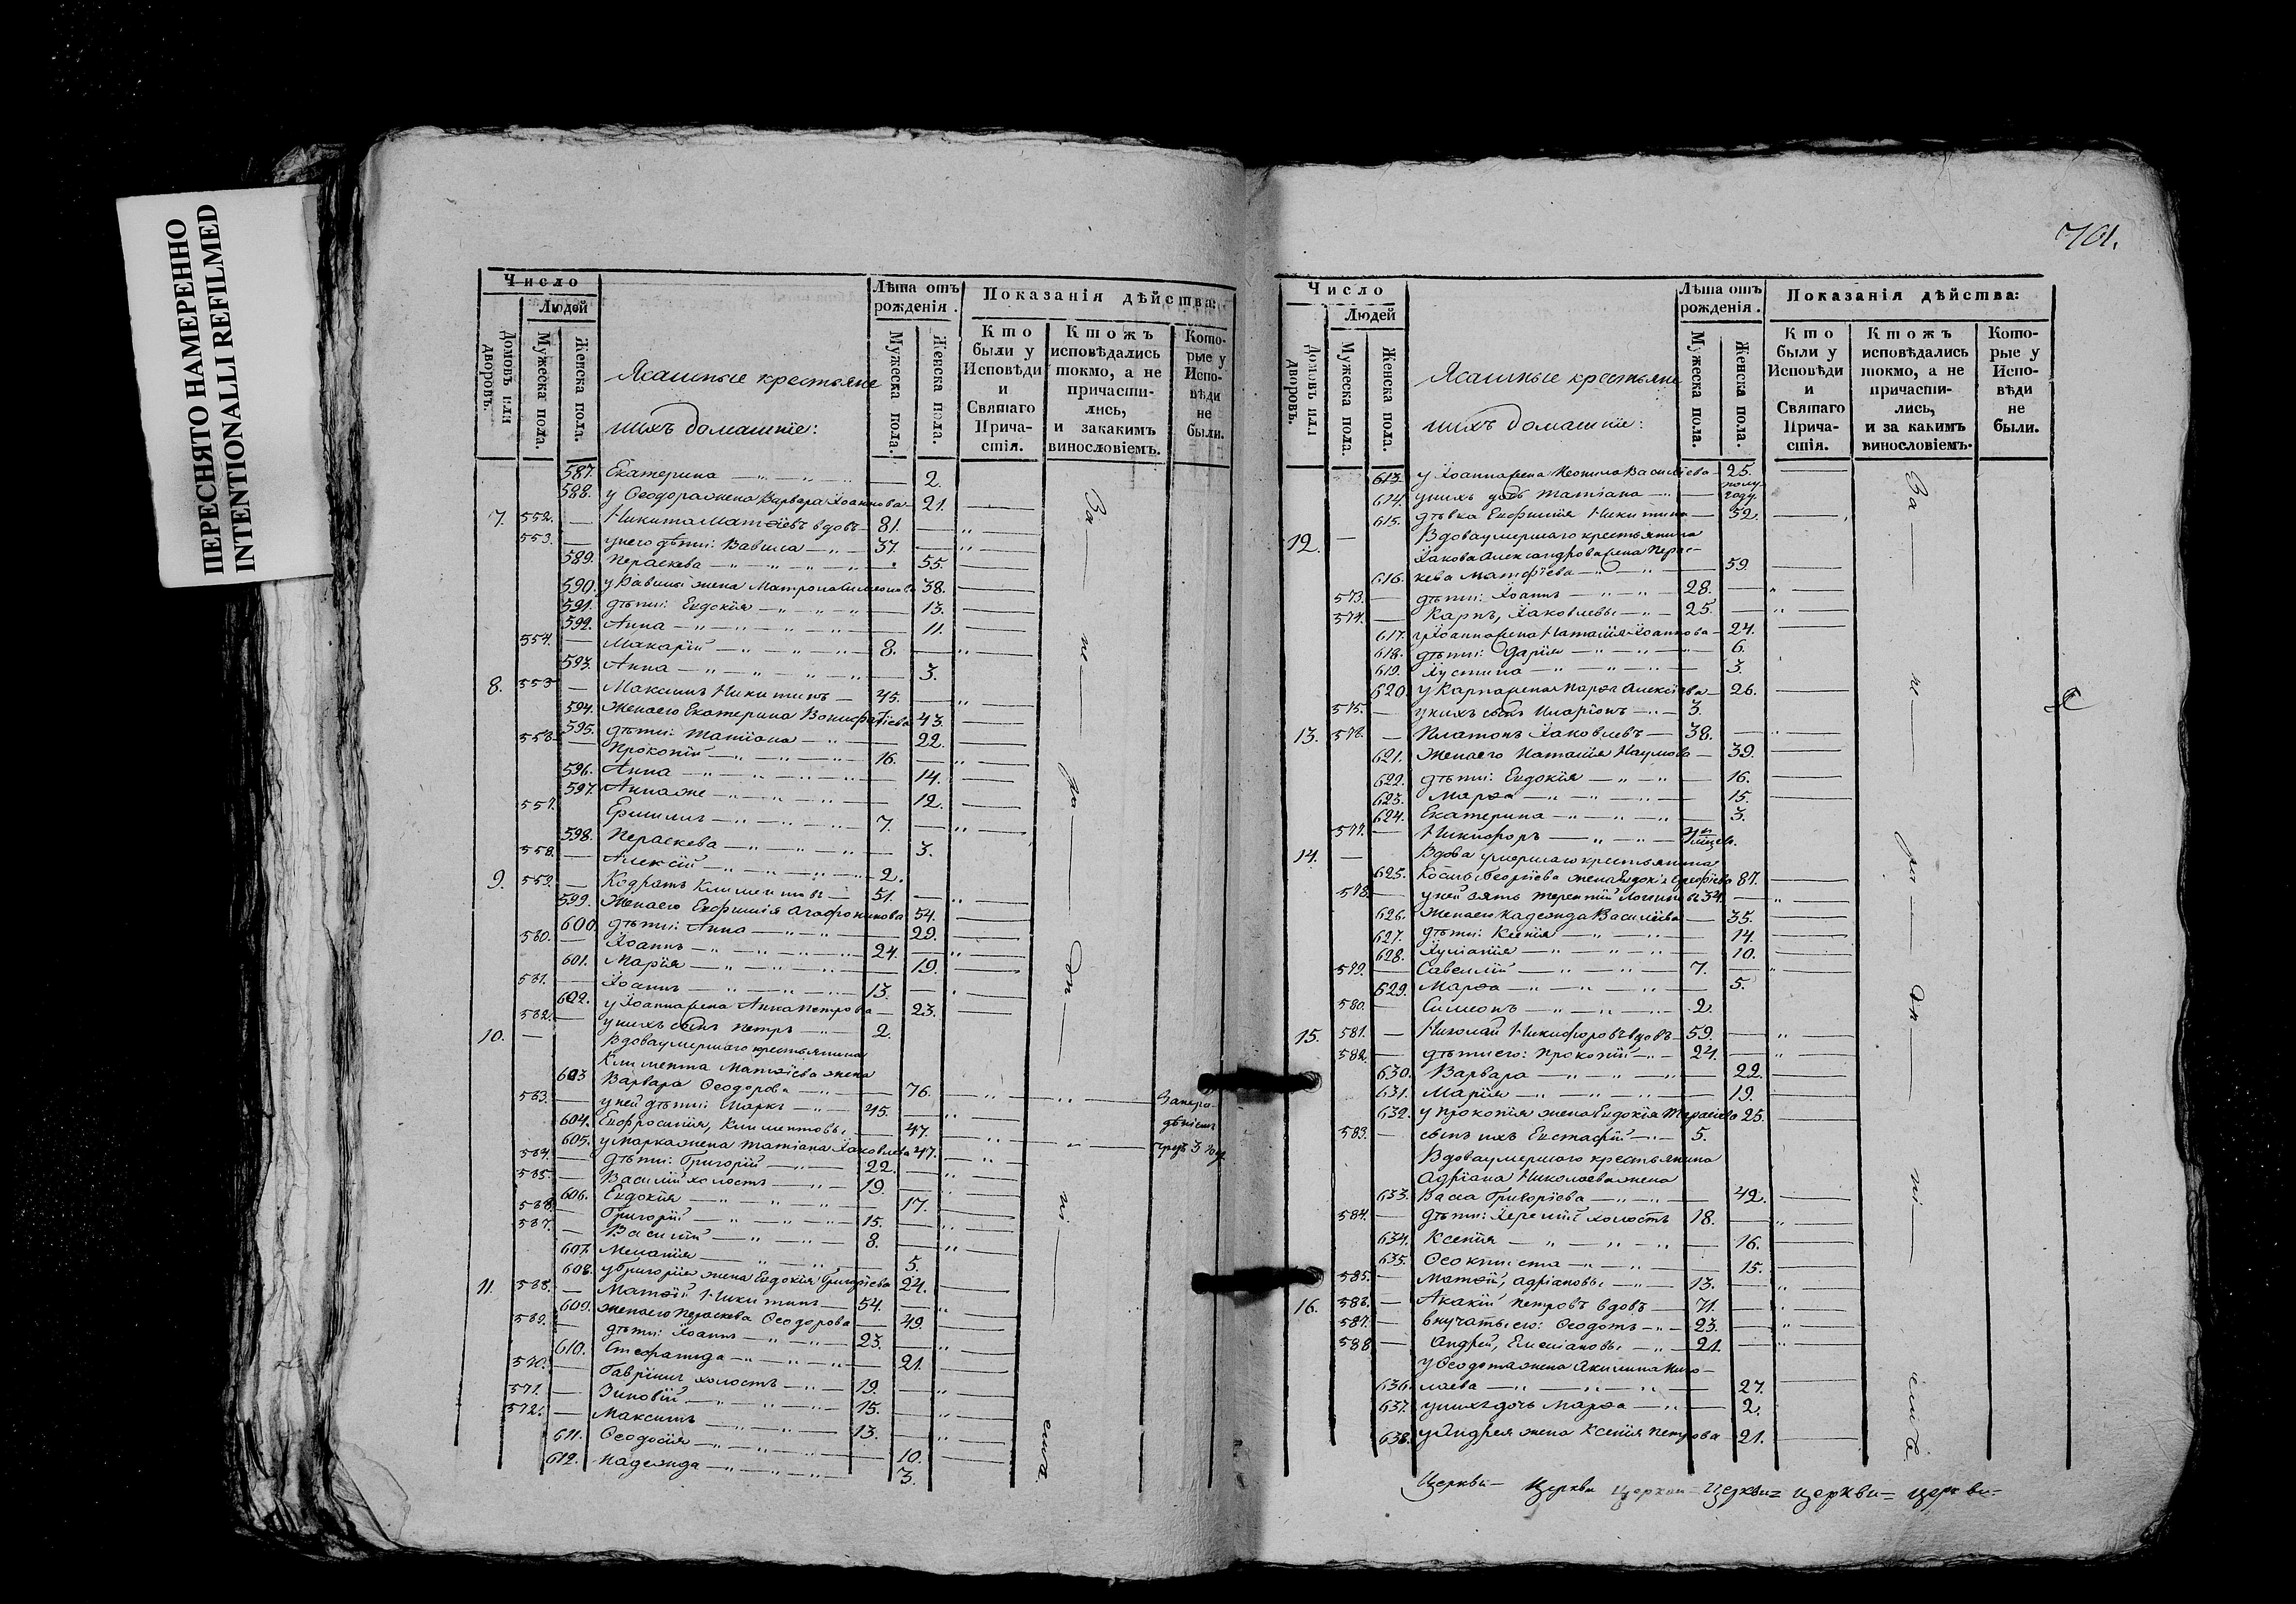 ПЕРЕСНЯТО НАМЕРЕННО
INTENTIONALLI REFILMED
Число
Людей
Домовъ или дворовъ.
Мужеска пола.
Женска пола.
Ясашные крестьяне
ихъ домашніе:
Лѣта отъ рожденія.
Мужеска пола.
Женска пола.
Показанія дѣйства:
Кто были у Исповѣди и Святаго Прича-стія.
Ктожъ исповѣдались токмо, а не причасти-лись, и закакимъ винословіемъ.
Кото-рые у Испо-вѣди не были.
587. Екатерина 2.
588. у Ѳеодора жена Варвара Іоаннова 21.
7. 552. Никита Матѳіевъ вдовъ 81.
553. у него дѣти: Вавила 37.
589. Параскева 55.
590. у Вавилы жена Матрона 38.
591. дѣти: Евдокія 13.
592. Анна 11.
554. Макарій 8.
593. Анна 3.
8. 555 Максимъ Никитинъ 45.
594. Жена его Екатерина 43.
595. дѣти: Татіана 22.
556 Прокопій 16.
596. Анна 14.
597. Анна же 12.
557. 7.
598. Пераскева 3.
558. Алексій 2.
9. 559. Кодратъ Климентовъ 51.
599. Жена его Евфимія Агафоникова 54.
600. дѣти: Анна 29.
560. Іоаннъ 24.
601. Марія 19.
561. Іоаннъ 13.
602. у Іоанна жена Анна Петрова 23.
562. у нихъ сынъ Петръ 2.
10. Вдова умершаго крестьянина
Климента Матѳіева жена
603 Варвара Ѳеодорова 76.
563. у ней дѣти: Маркъ 45.
604. Евфросинія, Климентовы 47.
605. у Марка жена Татіана Іаковлева 47.
564. дѣти: Григорій 22.
565. Василій холостъ 19.
606. Евдокія 17.
566. Григорій 15.
567. Василій 8.
607. Меланія 5.
608. у Григорія жена Евдокія Григоріева 24.
11. 568. Матѳій Никитинъ 54.
609. жена его Пераскева Ѳеодорова 49.
569. дѣти: Іоаннъ 23.
610. Стефанида 21.
570. Гавріилъ холостъ 19.
571. Зиновій 15.
572. Максимъ 13.
611. Ѳеодосія 10.
612. Надежда 3.
701.
Число
Людей
Домовъ или дворовъ.
Мужеска пола.
Женска пола.
Ясашные крестьяне
ихъ домашніе:
Лѣта отъ рожденія.
Мужеска пола.
Женска пола.
Показанія дѣйства:
Кто были у Исповѣди и Святаго Прича-стія.
Ктожъ исповѣдались токмо, а не причасти-лись, и за какимъ винословіемъ.
Кото-рые у Испо-вѣди не были.
613. у Іоанна жена Неонила Василіева 25.
614. у нихъ дочь Татіана полу году.
615. дѣвка Евфимія Никитина 52.
12. Вдова умершаго крестьянина
Іакова Александрова жена Перас-
616. кева Матѳіева 59.
573. дѣти: Іоаннъ 28.
574. Карпъ, Іаковлевы 25.
617. у Іоанна жена Наталія Іоаннова 24.
618. дѣти: Дарія 6.
619. Іустина 3.
620. у Карпа жена Марѳа Алексіева 26.
575. у нихъ сынъ Иларіонъ 3.
13. 576. Платонъ Іаковлевъ 38.
621. Жена его Наталія Наумова 39.
622. дѣти: Евдокія 16.
623. Марѳа 15.
624. Екатерина 3.
577. Никифоръ
14. Вдова умершаго крестьянина
625. Георгіева жена Евдокія 87.
578. у ней зять Терентій Логиновъ 34.
626. Жена его Надежда Василіева 35.
627. дѣти: Ксенія 14.
628. Іуліанія 10.
579. Савелій 7.
629. Марѳа 5.
580. Симеонъ 2.
15. 581. Николай Никифоровъ вдовъ 59.
582. дѣти его: Прокопій 24.
630. Варвара 22.
631. Марія 19.
632. у Прокопія жена Евдокія Тарасіева 25.
583. сынъ ихъ Евстафій 5.
Вдова умершаго крестьянина
Адріана Николаева жена
633. Васса Григоріева 42.
584. дѣти: Іеремій холостъ 18.
634. Ксенія 16.
635. Ѳеоктиста 15.
585. Матѳій, Адріановы 13.
16. 586. Акакій Петровъ вдовъ 71.
587. внучаты его: Ѳеодотъ 23.
588 Андрей, Емеліановы 21.
у Ѳеодота жена Акилина Нико-
636. лаева 27.
637. у нихъ дочь Марѳа 2.
638. у Андрея жена Ксенія Петрова 21.
Церкви - Церкви церкви - Церкви = церкви = церкви =